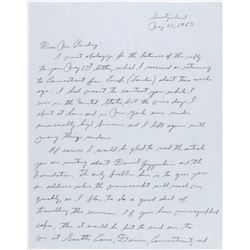 Switzerland
May 25, 1953
Dear Mr. Pendray:
I must apologize for the lateness of the reply
to your May 1st letter, which I received on returning to
Connecticut from Europe (London) about two weeks
ago. I had meant to contact you while I
was in the United States, but the nine days I
spent at home and in New York were under
unusually high pressure and I left again with
many things undone.
Of course I would be glad to read the article
you are writing about Daniel Guggenheim and the
Foundation. The only problem is to give you
an address where the manuscript will reach me
quickly, as I plan to do a good deal of
travelling this summer. If you have mimeographed
copies, then I would be fast to send one to
me at Scott's Cove, Darien, Connecticut, and